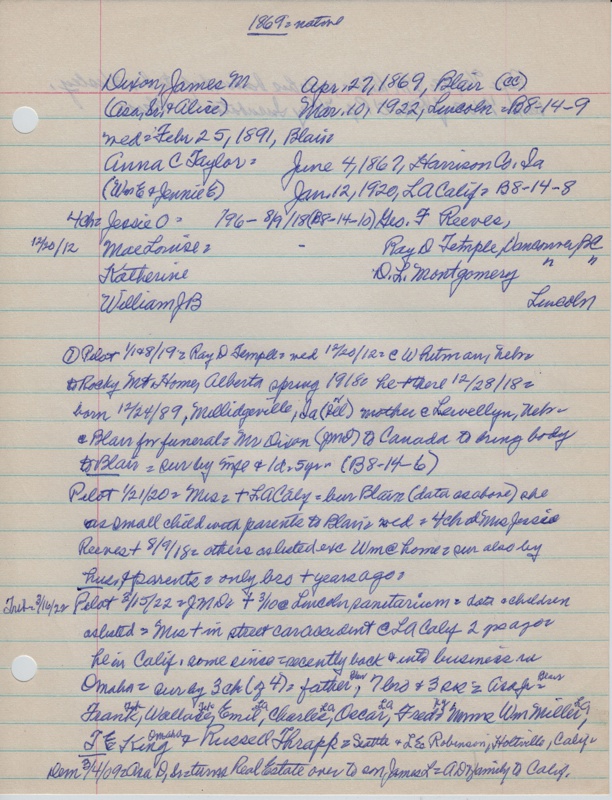 1869 = native
Dixon, James M Apr. 27, 1869, Blair (CC)
(Asa, Sr, & Alice) Mar. 10, 1922, Lincoln = B8-14-9
wed = Febr 25, 1891, Blair
Anna C Taylor = June 4, 1867, Harrison Co, Ia
(Wm E & Jennie E) Jan. 12, 1920, LA Calif = B8-14-8
4ch = Jessie O = 796 - 8/9/18 (B8-14-10) Geo. F Reeves,
12/20/12 Mae Louise = - Ray D Temple, Vancouver, BC
Katherine D. L. Montgomery " "
William J B Lincoln
① Pilot 1/8/19 = Ray D Temple = wed 12/20/12 = c Whitman, Nebr
to Rocky Mt Home, Alberta spring 1918 = he + there 12/28/18 =
born 12/24/89, Millidgeville, Ia (Ill) mother c Lewellyn, Nebr =
c Blair for funeral = Mr Dixon (JMD) to Canada to bring body
to Blair = sur by wife & 1d. 5yr = (B8-14-6)
Pilot 1/21/20 = Mrs = + LA Caly = bur Blair (data as above) she
as small child with parents to Blair = wed = 4ch = Mrs Jessie
Reeves + 8/9/18 = others as listed exc Wm c home = sur also by
hus. & parents = only bro + years ago =
Trib = 3/16/22 Pilot 3/15/22 = JMD = + 3/10 c Lincoln sanitarium = data = children
as listed = Mrs + in street car accident c LA Caly 2 yrs ago =
he in Calif. some since = recently back & into business in
Omaha = sur by 3 ch (of 4) = father, Blair 7 bro & 3 srs = Asa Jr = Blair
Frank, Wallace, Emil, LA Charles, LA Oscar, LA Fred = Mmes Wm Miller,
T E King Omaha & Russell Thrapp = Seattle & L E Robinson, Holtville, Calif =
Dem 3/4/09 = Asa D, Sr = turns Real Estate over to son James L = AD & family to Calif.